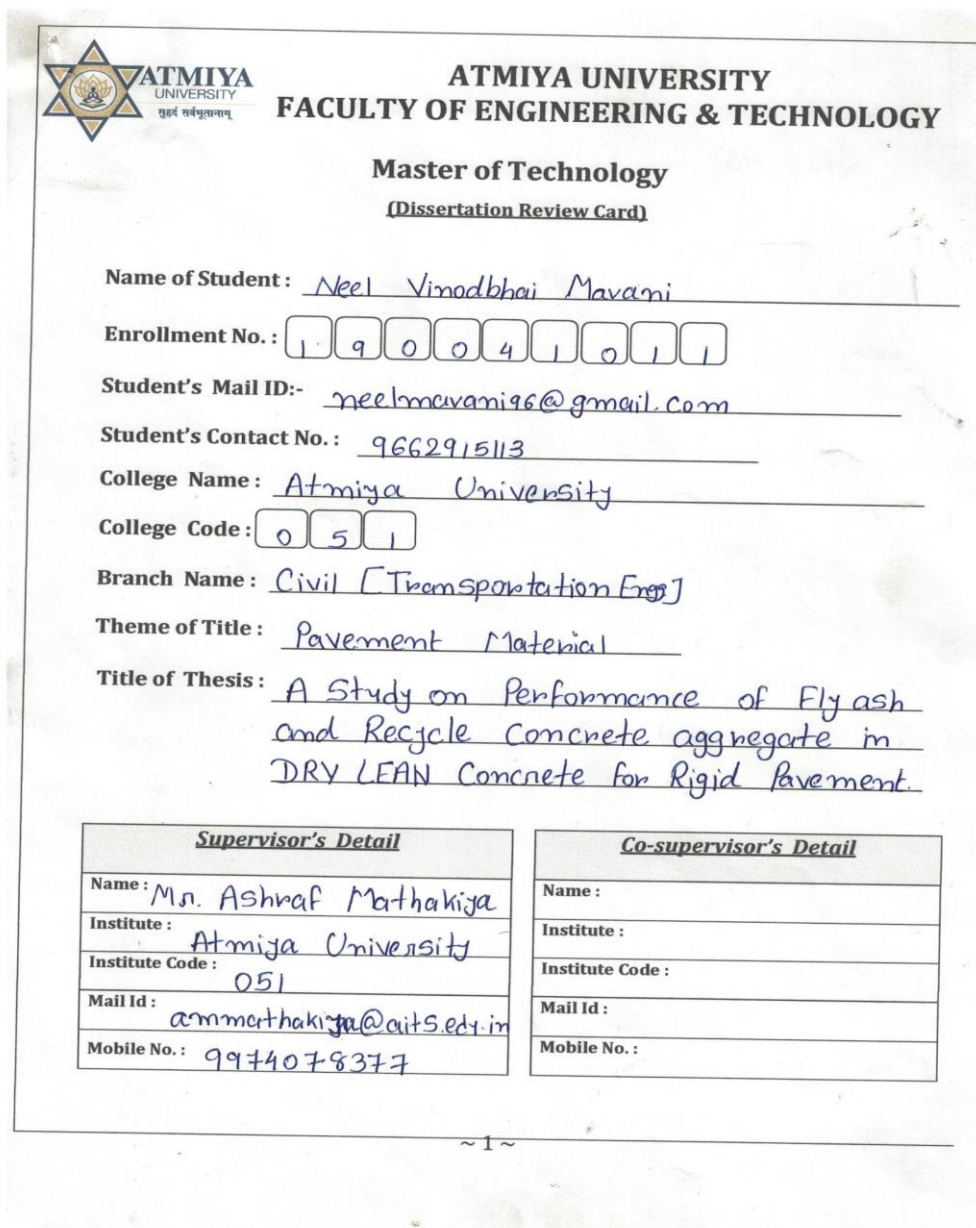 ATMIYA
UNIVERSITY
सुहृदं सर्वभूतानाम्
ATMIYA UNIVERSITY
FACULTY OF ENGINEERING & TECHNOLOGY
Master of Technology
(Dissertation Review Card)
Name of Student : Neel Vinodbhai Mavani
Enrollment No. : 190041011
Student's Mail ID:- neelmavani96@gmail.com
Student's Contact No. : 9662915113
College Name : Atmiya University
College Code : 051
Branch Name : Civil [Transportation Engg]
Theme of Title : Pavement Material
Title of Thesis : A Study on Performance of Fly ash
and Recycle Concrete aggregate in
DRY LEAN Concrete for Rigid Pavement.
Supervisor's Detail
Name : Mr. Ashraf Mathakiya
Institute : Atmiya University
Institute Code : 051
Mail Id : ammathakiya@aits.edu.in
Mobile No. : 9974078377
Co-supervisor's Detail
Name :
Institute :
Institute Code :
Mail Id :
Mobile No. :
~ 1 ~